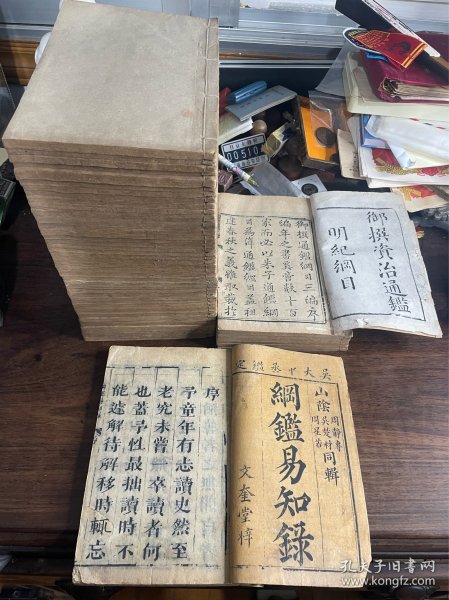 00510
御撰資治通鑑
明紀綱目
御撰通鑑綱目三編序
編年之書奚啻數十百
家而必以朱子通鑑綱
目為準通鑑綱目蓋祖
述春秋之義雖取裁於
吳大中丞鑑定
山陰 周靜專 吳楚材 周星若 同輯
綱鑑易知錄
文奎堂梓
序
予童年有志讀史然至
老究未嘗一卒讀者何
也蓋予性最拙讀時不
能遽解待解移時輒忘
孔夫子旧书网